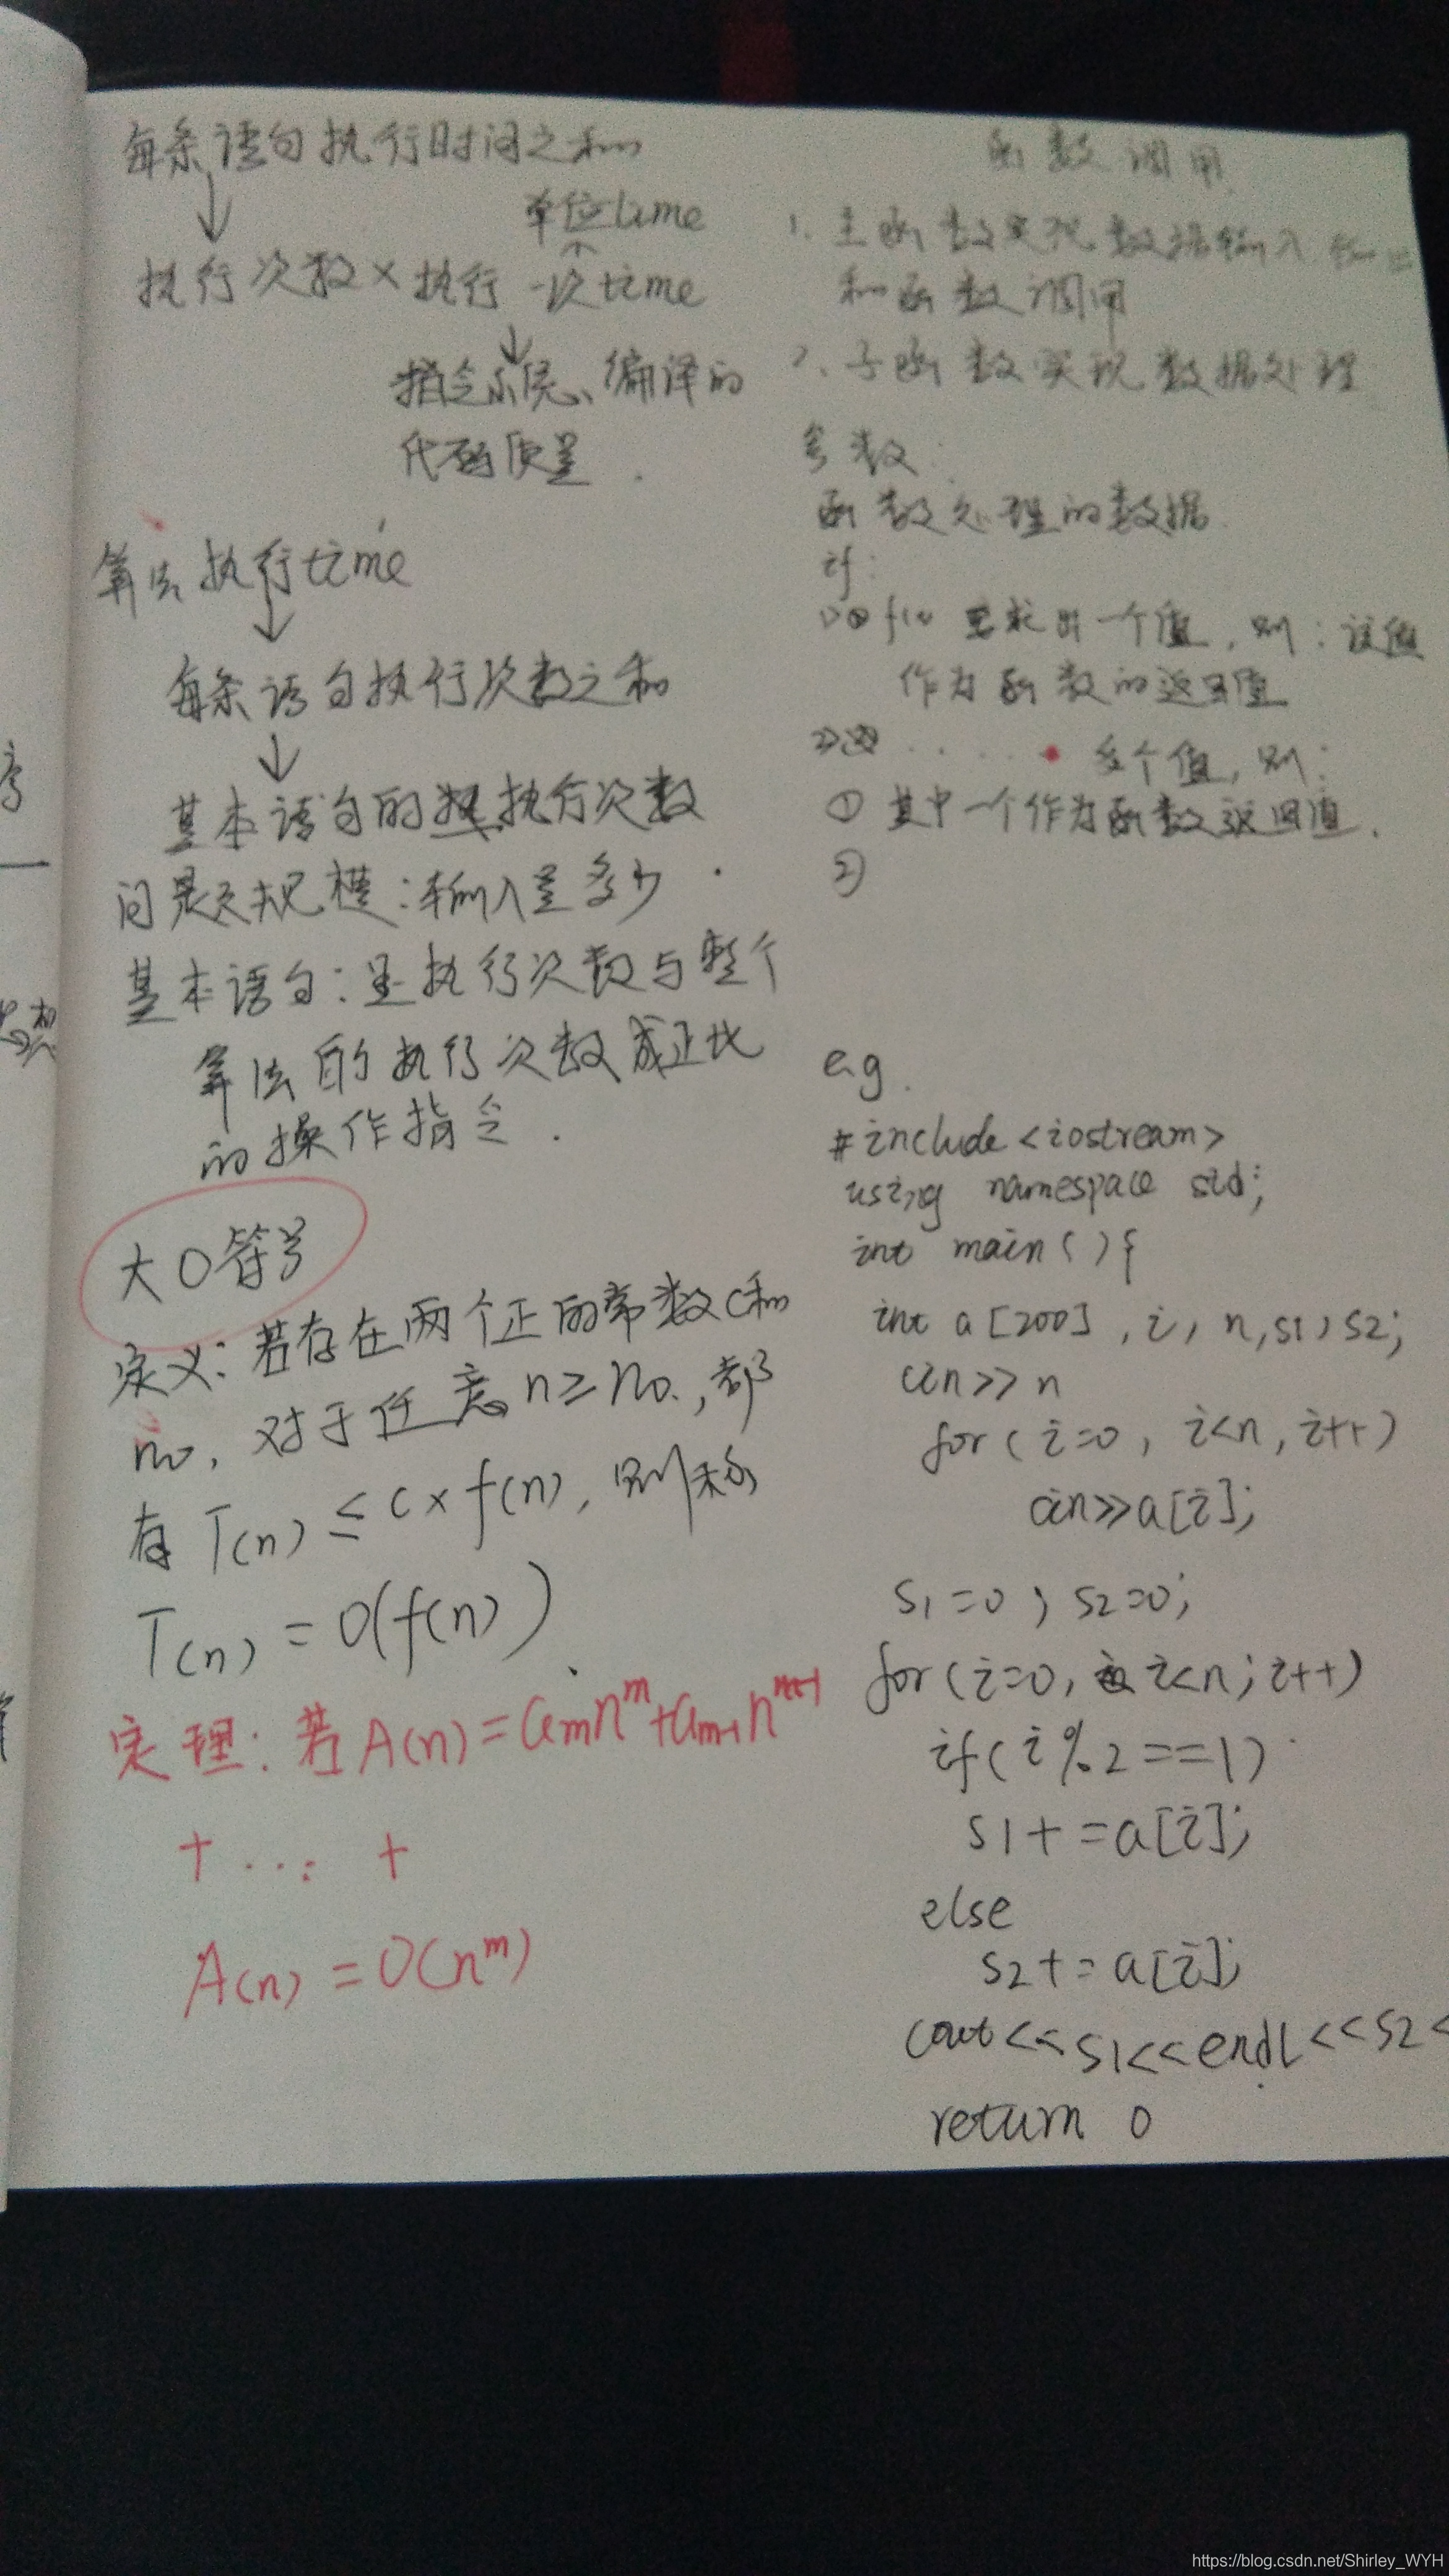 每条语句执行时间之和
↓ 单位time
执行次数×执行一次time
↓
指令系统、编译的
代码质量.
算法执行time
↓
每条语句执行次数之和
↓
基本语句的执行次数
问题规模:输入量多少.
基本语句:是执行次数与整个
算法的执行次数成正比
的操作指令.
大O符号
定义:若存在两个正的常数c和
n0,对于任意n≥n0,都
有T(n)≤c×f(n),则称
T(n)=O(f(n)).
定理:若A(n)=amn^m+am-1n^m-1
+...+
A(n)=O(n^m)
函数调用
1.主函数实现数据输入、输出
和函数调用
2、子函数实现数据处理
参数:
函数处理的数据
if:
求出一个值,则:该值
作为函数的返回值
..... 多个值,则:
① 其中一个作为函数返回值.
②
e.g.
#include<iostream>
using namespace std;
int main(){
int a[200],i,n,s1,s2;
cin>>n
for(i=0,i<n,i++)
cin>>a[i];
s1=0;s2=0;
for(i=0,i<n;i++)
if(i%2==1)
s1+=a[i];
else
s2+=a[i];
cout<<s1<<endl<<s2<
return 0
思想
https://blog.csdn.net/Shirley_WYH